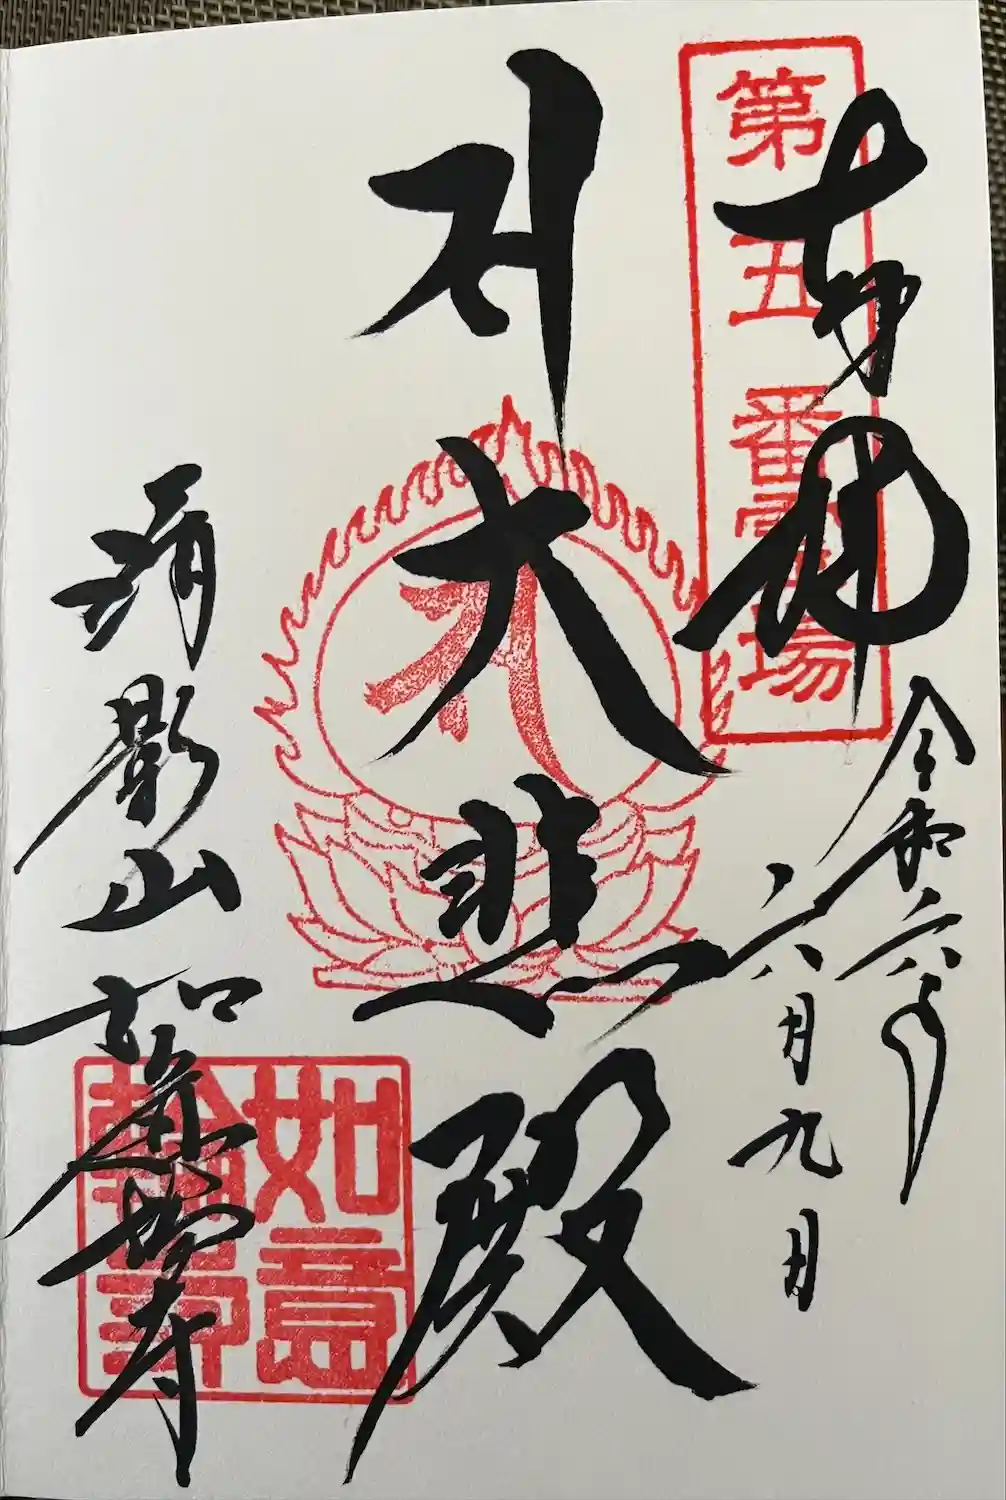 奉拝
第五番霊場
令和六年
六月九日
大悲殿
清影山
如意輪寺
如意
輪寺